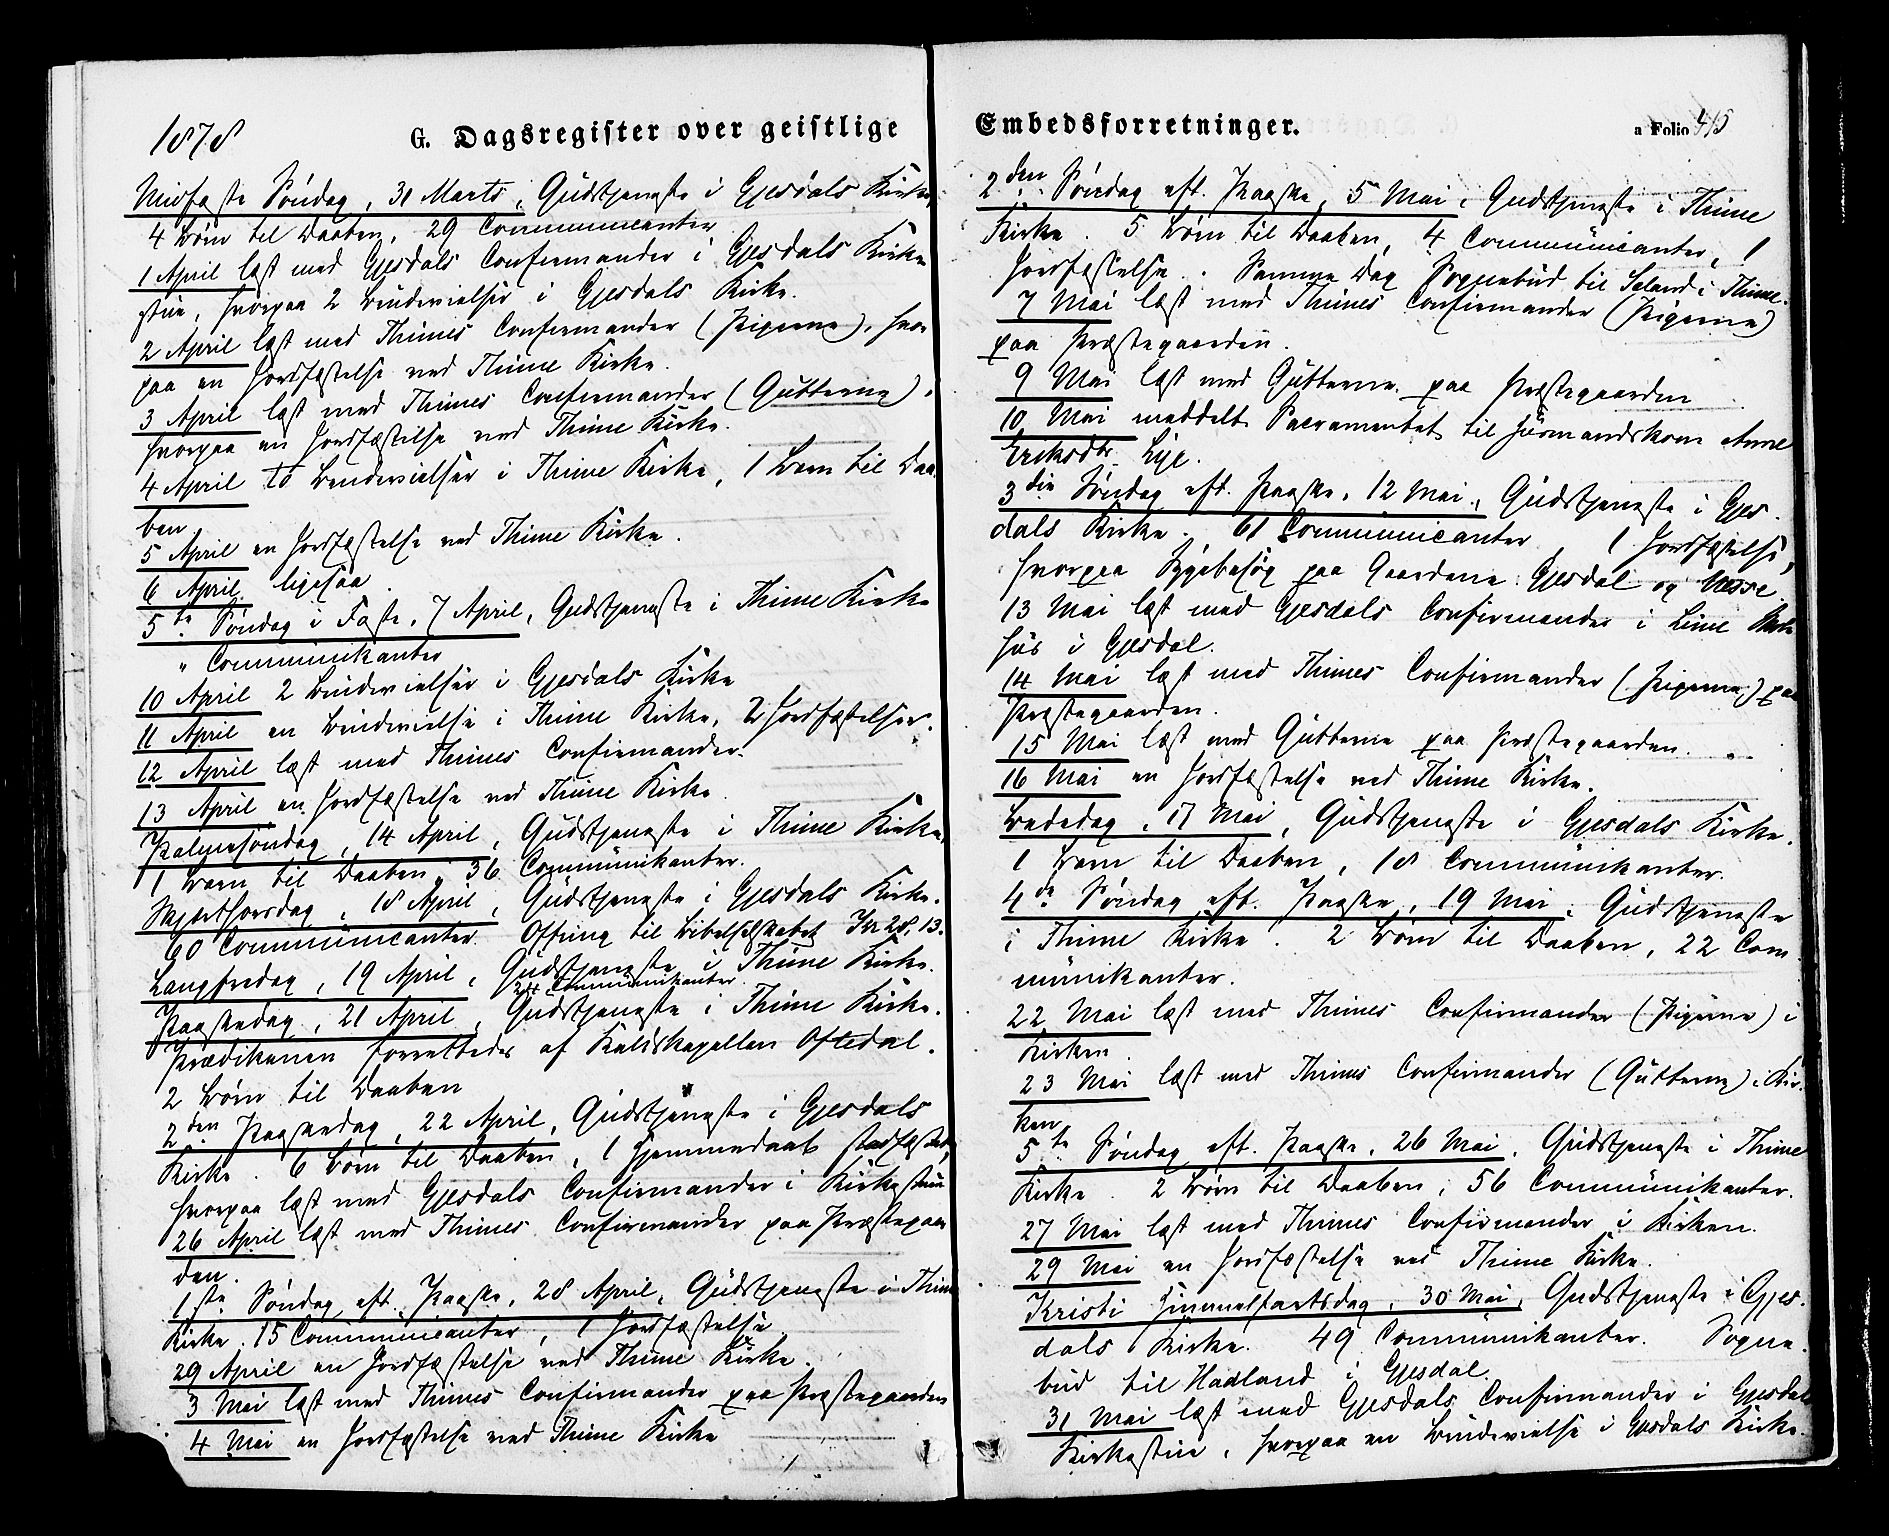 1878
G. Dagsregister over geistlige
Midfaste Søndag, 31 Marts, Gudstjeneste i Gjesdals Kirke,
4 Børn til Daaben, 29 Communicanter
1 April læst med Gjesdals Confirmander i Gjesdals Kirke
stue, hvorpaa 2 Brudevielser i Gjesdals Kirke.
2 April læst med Thimes Confirmander (Pigerne), hvor
paa en Jordfæstelse ved Thime Kirke.
3 April læst med Thimes Confirmander (Gutterne),
hvorpaa en Jordfæstelse ved Thime Kirke.
4 April to Brudevielser i Thime Kirke, 1 Barn til Daa
ben
5 April en Jordfæstelse ved Thime Kirke.
6 April ligesaa
5te Søndag i Faste, 7 April, Gudstjeneste i Thime Kirke
" Communikanter
10 April 2 Brudevielser i Gjesdals Kirke
11 April en Brudevielse i Thime Kirke, 2 Jordfæstelser.
12 April læst med Thimes Confirmander.
13 April en Jordfæstelse ved Thime Kirke.
Palmesøndag, 14 April, Gudstjeneste i Thime Kirke,
1 Barn til Daaben, 36 Communikanter.
Skjærthorsdag, 18 April, Gudstjeneste i Gjesdals Kirke.
60 Communicanter. Offring til Bibelselskabet Kr 28,13.
Langfredag, 19 April, Gudstjeneste i Thime Kirke.
24 Communikanter.
Paaskedag, 21 April, Gudstjeneste i Thime Kirke.
Prædikenen forrettedes af Kaldskapellan Oftedal.
2 Børn til Daaben
2den Paaskedag, 22 April, Gudstjeneste i Gjesdals
Kirke. 6 Børn til Daaben, 1 Hjemmedaab stadfæstet,
hvorpaa læst med Gjesdals Confirmander i Kirkestuen
26 April læst med Thimes Confirmander paa Præstegaar
den.
1ste Søndag eft. Paaske, 28 April, Gudstjeneste i Thime
Kirke. 15 Communicanter, 1 Jordfæstelse
29 April en Jordfæstelse ved Thime Kirke.
3 Mai læst med Thimes Confirmander paa Præstegaarden
4 Mai en Jordfæstelse ved Thime Kirke
Embedsforretninger.
a Folio 415
2den Søndag eft. Paaske, 5 Mai, Gudstjeneste i Thime
Kirke. 5 Børn til Daaben, 4 Communicanter, 1
Jordfæstelse. Samme Dag Sognebud til Seland i Thime.
7 Mai læst med Thimes Confirmander (Pigerne)
paa Præstegaarden.
9 Mai læst med Gutterne paa Præstegaarden
10 Mai meddelt Sacramentet til Huusmandskone Anne
Eriksdtr. Lye.
3die Søndag eft. Paaske, 12 Mai, Gudstjeneste i Gjes
dals Kirke. 61 Communicanter, 1 Jordfæstelse,
hvorpaa Sygebesøg paa Gaardene Gjesdal og Væsse.
13 Mai læst med Gjesdals Confirmander i Lime Skole
hus i Gjesdal.
14 Mai læst med Thimes Confirmander (Pigerne) paa
Præstegaarden.
15 Mai læst med Gutterne paa Præstegaarden.
16 Mai en Jordfæstelse ved Thime Kirke.
Bededag, 17 Mai, Gudstjeneste i Gjesdals Kirke.
1 Barn til Daaben, 18 Communikanter.
4de Søndag eft. Paaske, 19 Mai, Gudstjeneste
i Thime Kirke. 2 Børn til Daaben, 22 Com
munikanter.
22 Mai læst med Thimes Confirmander (Pigerne) i
Kirken.
23 Mai læst med Thimes Confirmander (Gutterne) i Kir
ken
5te Søndag eft. Paaske, 26 Mai, Gudstjeneste i Thime
Kirke. 2 Børn til Daaben, 56 Communikanter.
27 Mai læst med Thimes Confirmander i Kirken.
29 Mai en Jordfæstelse ved Thime Kirke.
Kristi Himmelfartsdag, 30 Mai, Gudstjeneste i Gjes
dals Kirke. 49 Communikanter. Sogne
bud til Hadland i Gjesdal.
31 Mai læst med Gjesdals Confirmander i Gjesdals
Kirkestue, hvorpaa en Brudevielse i Gjesdals Kirke.